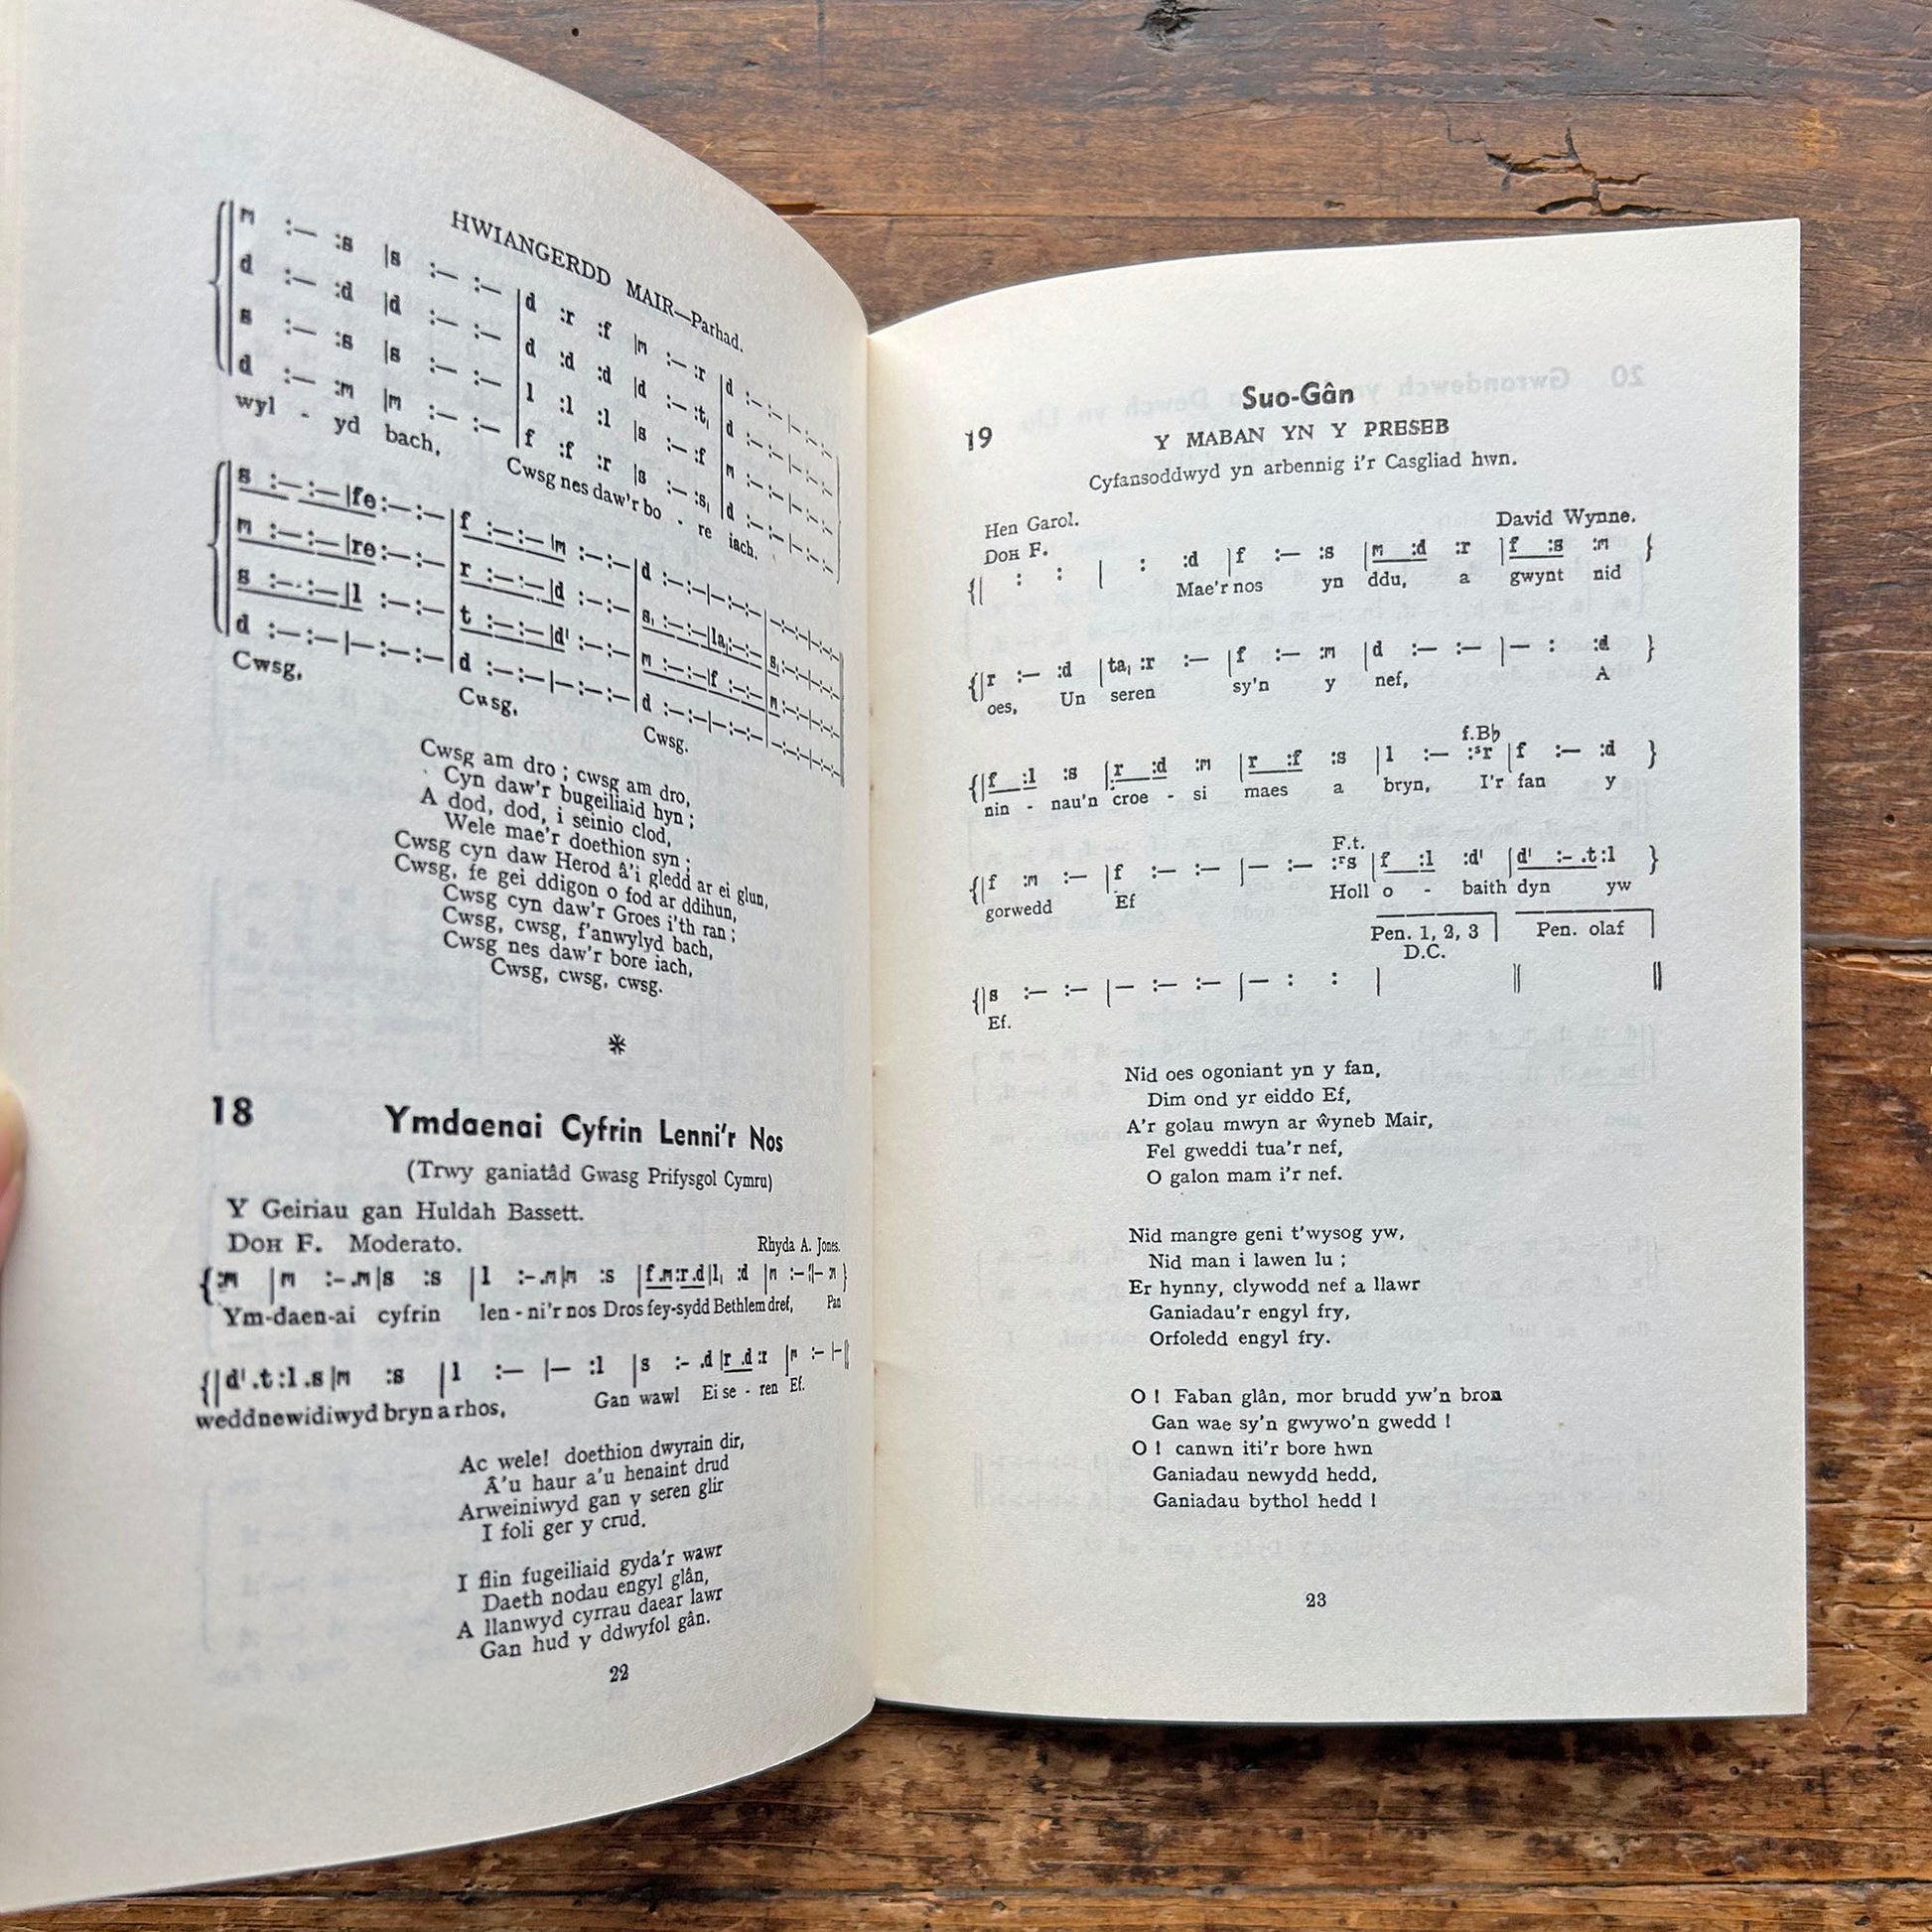 HWIANGERDD MAIR—Parhad.
m :— :s |s :— :— |d :r :f |m :— :r |d :—:—|—:—:—
d :— :d |d :— :— |d :d :d |d :— :t, |d :—:—|—:—:—
s :— :s |s :— :— |l :l :l |s :— :f |m :—:—|—:—:—
d :— :m |m :— :— |f :f :r |s :— :s, |d :—:—|—:—:—
wyl - yd bach, Cwsg nes daw'r bo - re iach.
s :—:—|fe:—:— |f :—:—|m :—:— |d :—:—|—:—:— |—:—:—|—:—:—
m :—:—|re:—:— |r :—:—|d :—:— |s, :—:—|la,:—:— |s, :—:—|—:—:—
s :—:—|l :—:— |t :—:—|d' :—:— |m :—:—|f :—:— |m :—:—|—:—:—
d :—:—|—:—:— |d :—:—|—:—:— |d :—:—|—:—:— |—:—:—|—:—:—
Cwsg, Cwsg, Cwsg.
Cwsg am dro ; cwsg am dro,
Cyn daw'r bugeiliaid hyn ;
A dod, dod, i seinio clod,
Wele mae'r doethion syn ;
Cwsg cyn daw Herod â'i gledd ar ei glun,
Cwsg, fe gei ddigon o fod ar ddihun,
Cwsg cyn daw'r Groes i'th ran ;
Cwsg, cwsg, f'anwylyd bach,
Cwsg nes daw'r bore iach,
Cwsg, cwsg, cwsg.
*
18 Ymdaenai Cyfrin Lenni'r Nos
(Trwy ganiatâd Gwasg Prifysgol Cymru)
Y Geiriau gan Huldah Bassett.
DOH F. Moderato. Rhyda A. Jones.
{:m |m :-.m|s :s |l :-.m|m :s |f.m:r.d|l, :d |m :-:|- :m }
Ym-daen-ai cyfrin len - ni'r nos Dros fey-sydd Bethlem dref, Pan
{|d'.t:l.s|m :s |l :— |— :l |s :-.d|r.d:r |m :- |-||
weddnewidiwyd bryn a rhos, Gan wawl Ei se - ren Ef.
Ac wele! doethion dwyrain dir,
Â'u haur a'u henaint drud
Arweiniwyd gan y seren glir
I foli ger y crud.
I flin fugeiliaid gyda'r wawr
Daeth nodau engyl glân,
A llanwyd cyrrau daear lawr
Gan hud y ddwyfol gân.
22
19 Suo-Gân
Y MABAN YN Y PRESEB
Cyfansoddwyd yn arbennig i'r Casgliad hwn.
Hen Garol. David Wynne.
DOH F.
{| : : | : :d |f :— :s |m :d :r |f :s :m }
Mae'r nos yn ddu, a gwynt nid
{|r :— :d |ta, :r :— |f :— :m |d :— :— |— : :d }
oes, Un seren sy'n y nef, A
f.B♭
{|f :l :s |r :d :m |r :f :s |l :— :ˢr |f :— :d }
nin - nau'n croe - si maes a bryn, I'r fan y
F.t.
{|f :m :— |f :— :— |— :— :ʳs |f :l :d' |d' :-.t:l }
gorwedd Ef Holl o - baith dyn yw
Pen. 1, 2, 3 Pen. olaf
D.C.
{|s :— :— |— :— :— |— : : | || ||
Ef.
Nid oes ogoniant yn y fan,
Dim ond yr eiddo Ef,
A'r golau mwyn ar ŵyneb Mair,
Fel gweddi tua'r nef,
O galon mam i'r nef.
Nid mangre geni t'wysog yw,
Nid man i lawen lu ;
Er hynny, clywodd nef a llawr
Ganiadau'r engyl fry,
Orfoledd engyl fry.
O ! Faban glân, mor brudd yw'n bron
Gan wae sy'n gwywo'n gwedd !
O ! canwn iti'r bore hwn
Ganiadau newydd hedd,
Ganiadau bythol hedd !
23